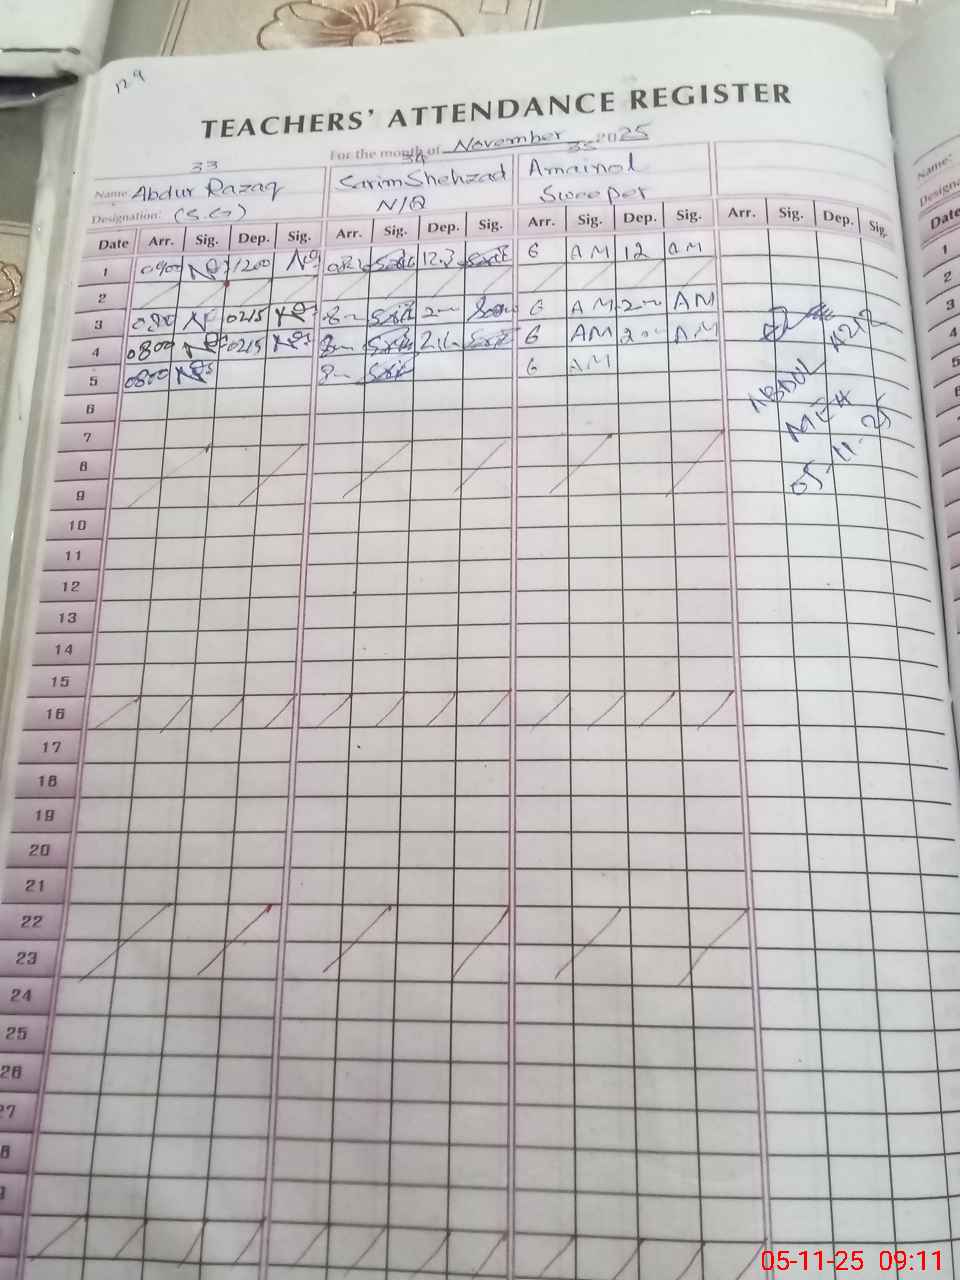 129
TEACHERS' ATTENDANCE REGISTER
For the month of November 2025
33 34 35
Name: Abdur Razaq Sarim Shehzad Amainol
Designation: (S.G) N/Q Sweeper
Date Arr. Sig. Dep. Sig. Arr. Sig. Dep. Sig. Arr. Sig. Dep. Sig. Arr. Sig. Dep. Sig.
1 0900 1200 6 AM 12 AM
2
3 0800 0215 6 AM 200 AM
4 0800 0215 6 AM 200 AM
5 0800 6 AM
6
7
8
9
10
11
12
13
14
15
16
17
18
19
20
21
22
23
24
25
26
27
8
9
ABDUL AZIZ
MEA
05-11-25
Name:
Design
Date
1
2
3
4
5
6
05-11-25 09:11